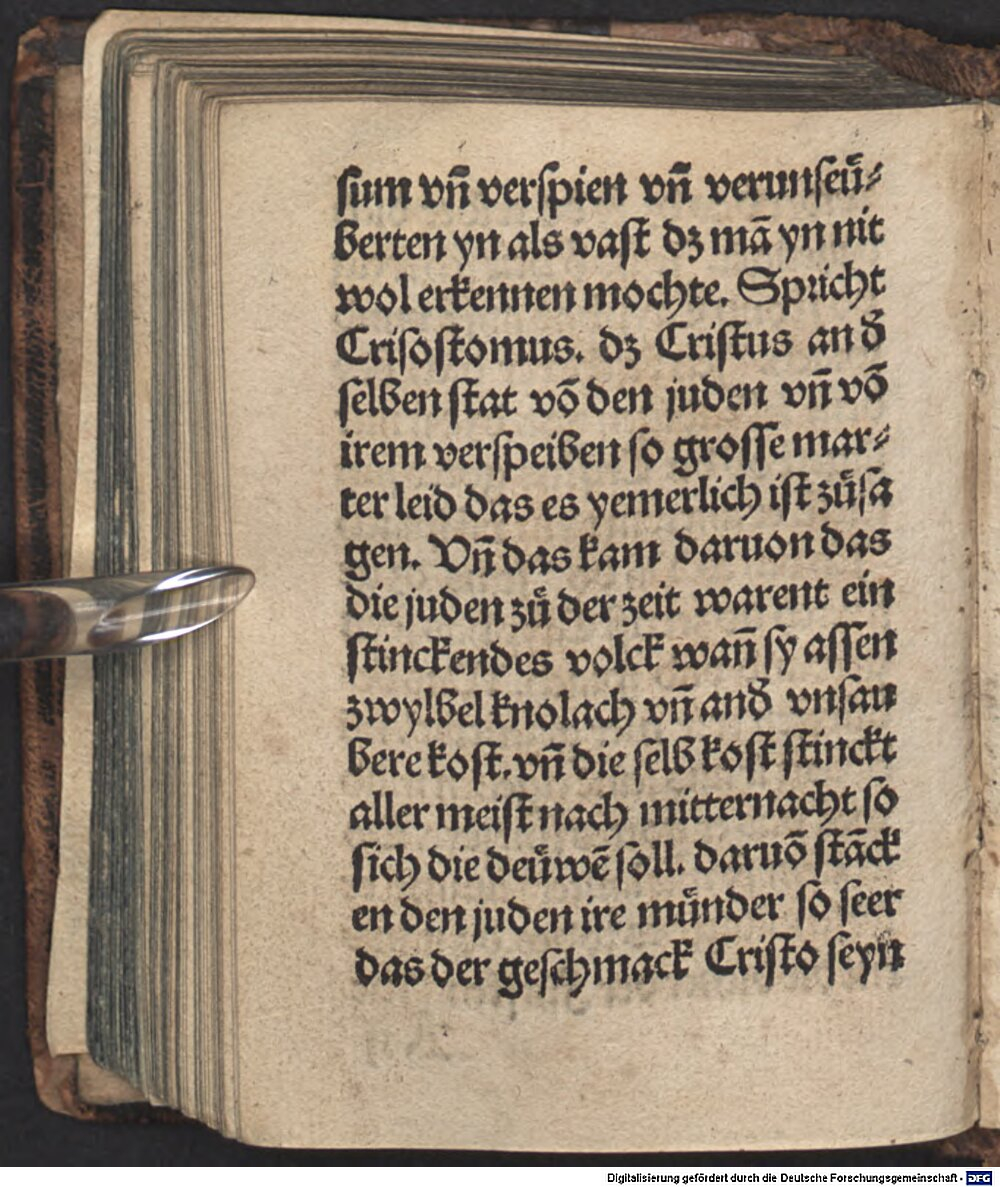 sum vn̄ verspien vn̄ verunseü⸗
berten yn als vast dꝫ mā yn nit
wol erkennen mochte. Spricht
Crisostomus. dꝫ Cristus an đ
selben stat vō den juden vn̄ vō
irem verspeiben so grosse mar⸗
ter leid das es yemerlich ist zůsa
gen. Vn̄ das kam daruon das
die juden zů der zeit warent ein
stinckendes volck wan̄ sy assen
zwylbel knolach vn̄ anđ vnsau
bere kost. vn̄ die selb kost stinckt
aller meist nach mitternacht so
sich die deüwē soll. daruō stāck
en den juden ire münder so seer
das der geschmack Cristo seyn
Digitalisierung gefördert durch die Deutsche Forschungsgemeinschaft - DFG